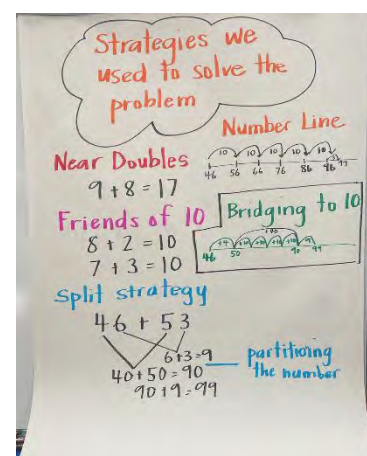 Strategies we
used to solve the
problem
Number Line
10 10 10 10 10 3
46 56 66 76 86 96 99
Near Doubles
9 + 8 = 17
Friends of 10
8 + 2 = 10
7 + 3 = 10
Bridging to 10
+4 +10 +10 +10 +10 +9
46 50 90 99
Split strategy
46 + 53
6+3=9
40+50=90
90+9=99
partitioning
the number